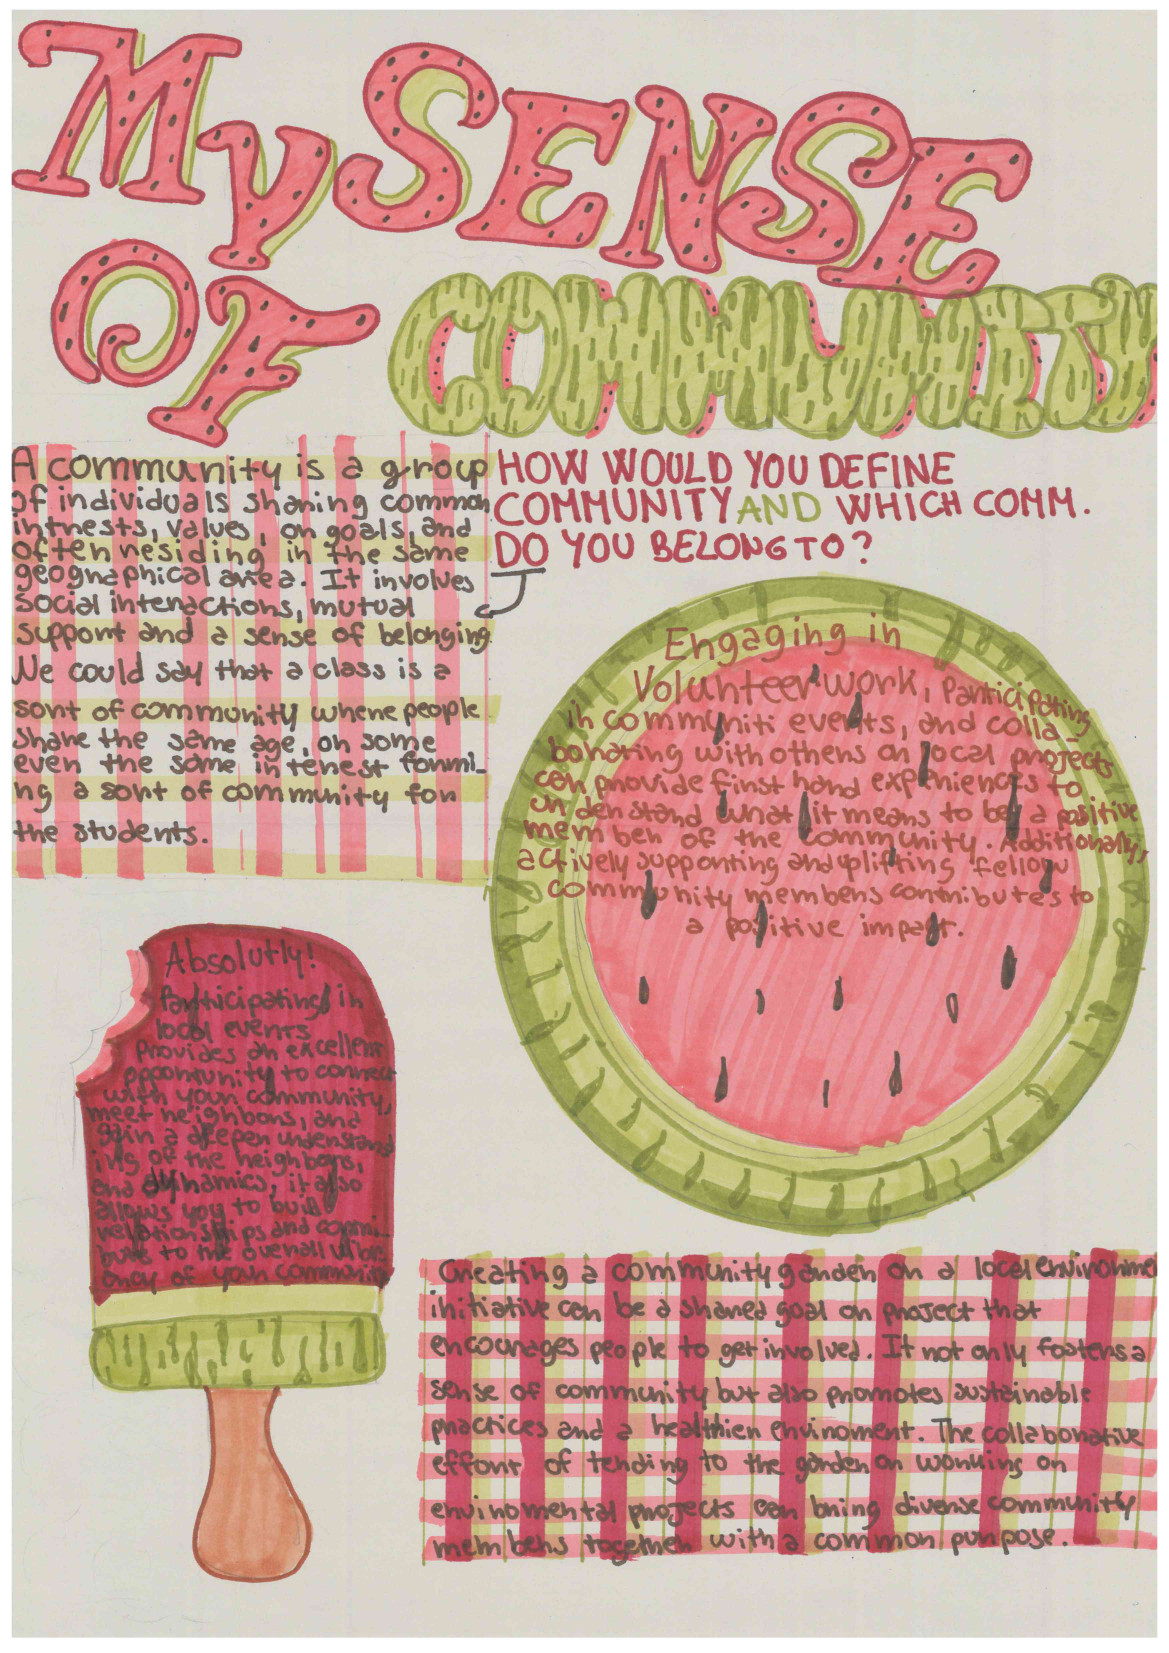 My SENSE
OF COMMUNITY
A community is a group
of individuals sharing common
intrests, values, or goals, and
often residing in the same
geographical area. It involves
social interactions, mutual
support and a sense of belonging.
We could say that a class is a
sort of community where people
share the same age, or some
even the same interest formi_
ng a sort of community for
the students.
HOW WOULD YOU DEFINE
COMMUNITY AND WHICH COMM.
DO YOU BELONG TO?
Engaging in
Volunteer work, Participating
in communiti events, and colla_
borating with others on local projects
can provide first hand experiences to
understand what it means to be a positive
member of the community. Additionally,
actively supporting and uplifting fellow
community members contributes to
a positive impact.
Absolutly!
Participating in
local events
provides an excellent
opportunity to connect
with your community,
meet neighbors, and
gain a deeper understand
ing of the neighbors,
and dynamics, it also
allows you to build
relationships and contri_
bute to the overall vibr
ancy of your community
Creating a community garden or a local environme
initiative can be a shared goal or project that
encourages people to get involved. It not only fosters a
sense of community but also promotes sustainable
practices and a healthier enviroment. The collaborative
effort of tending to the garden or working on
enviromental projects can bring diverse community
members together with a common purpose.